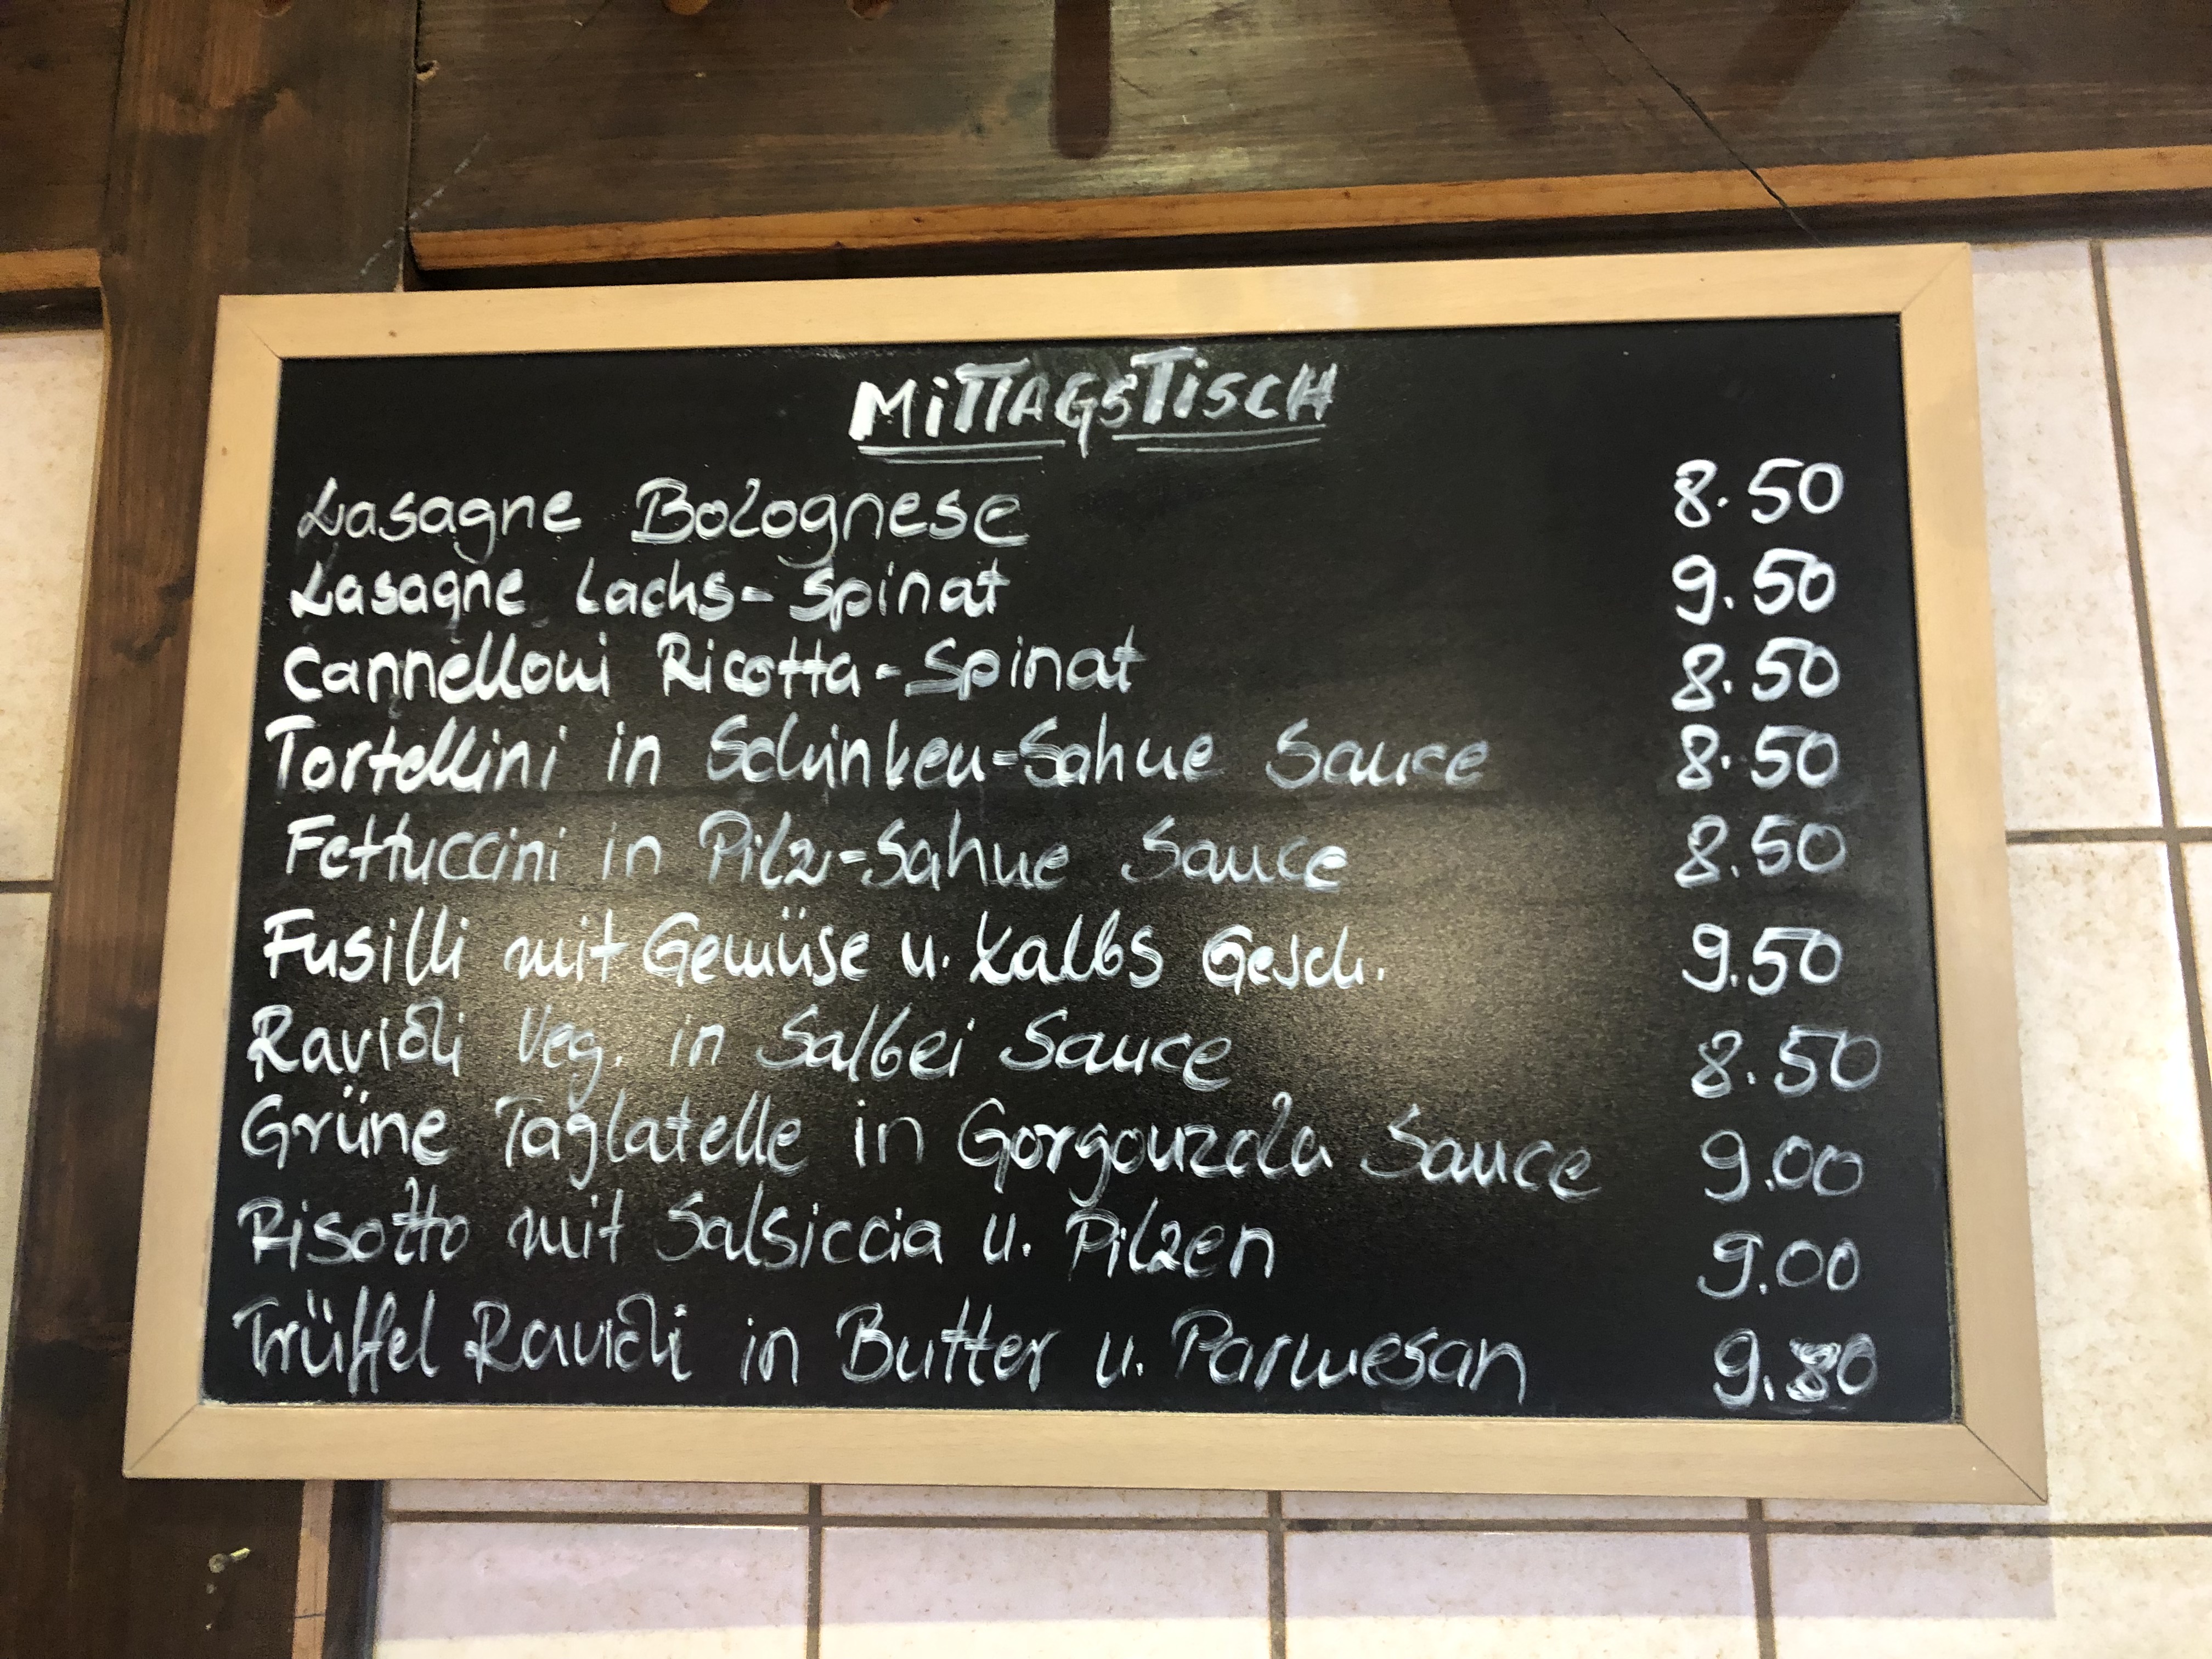 MITTAGSTISCH
Lasagne Bolognese 8.50
Lasagne Lachs-Spinat 9.50
Cannelloni Ricotta-Spinat 8.50
Tortellini in Schinken-Sahne Sauce 8.50
Fettuccini in Pilz-Sahne Sauce 8.50
Fusilli mit Gemüse u. Kalbs Gesch. 9.50
Ravioli Veg. in Salbei Sauce 8.50
Grüne Taglatelle in Gorgonzola Sauce 9.00
Risotto mit Salsiccia u. Pilzen 9.00
Trüffel Ravioli in Butter u. Parmesan 9.80